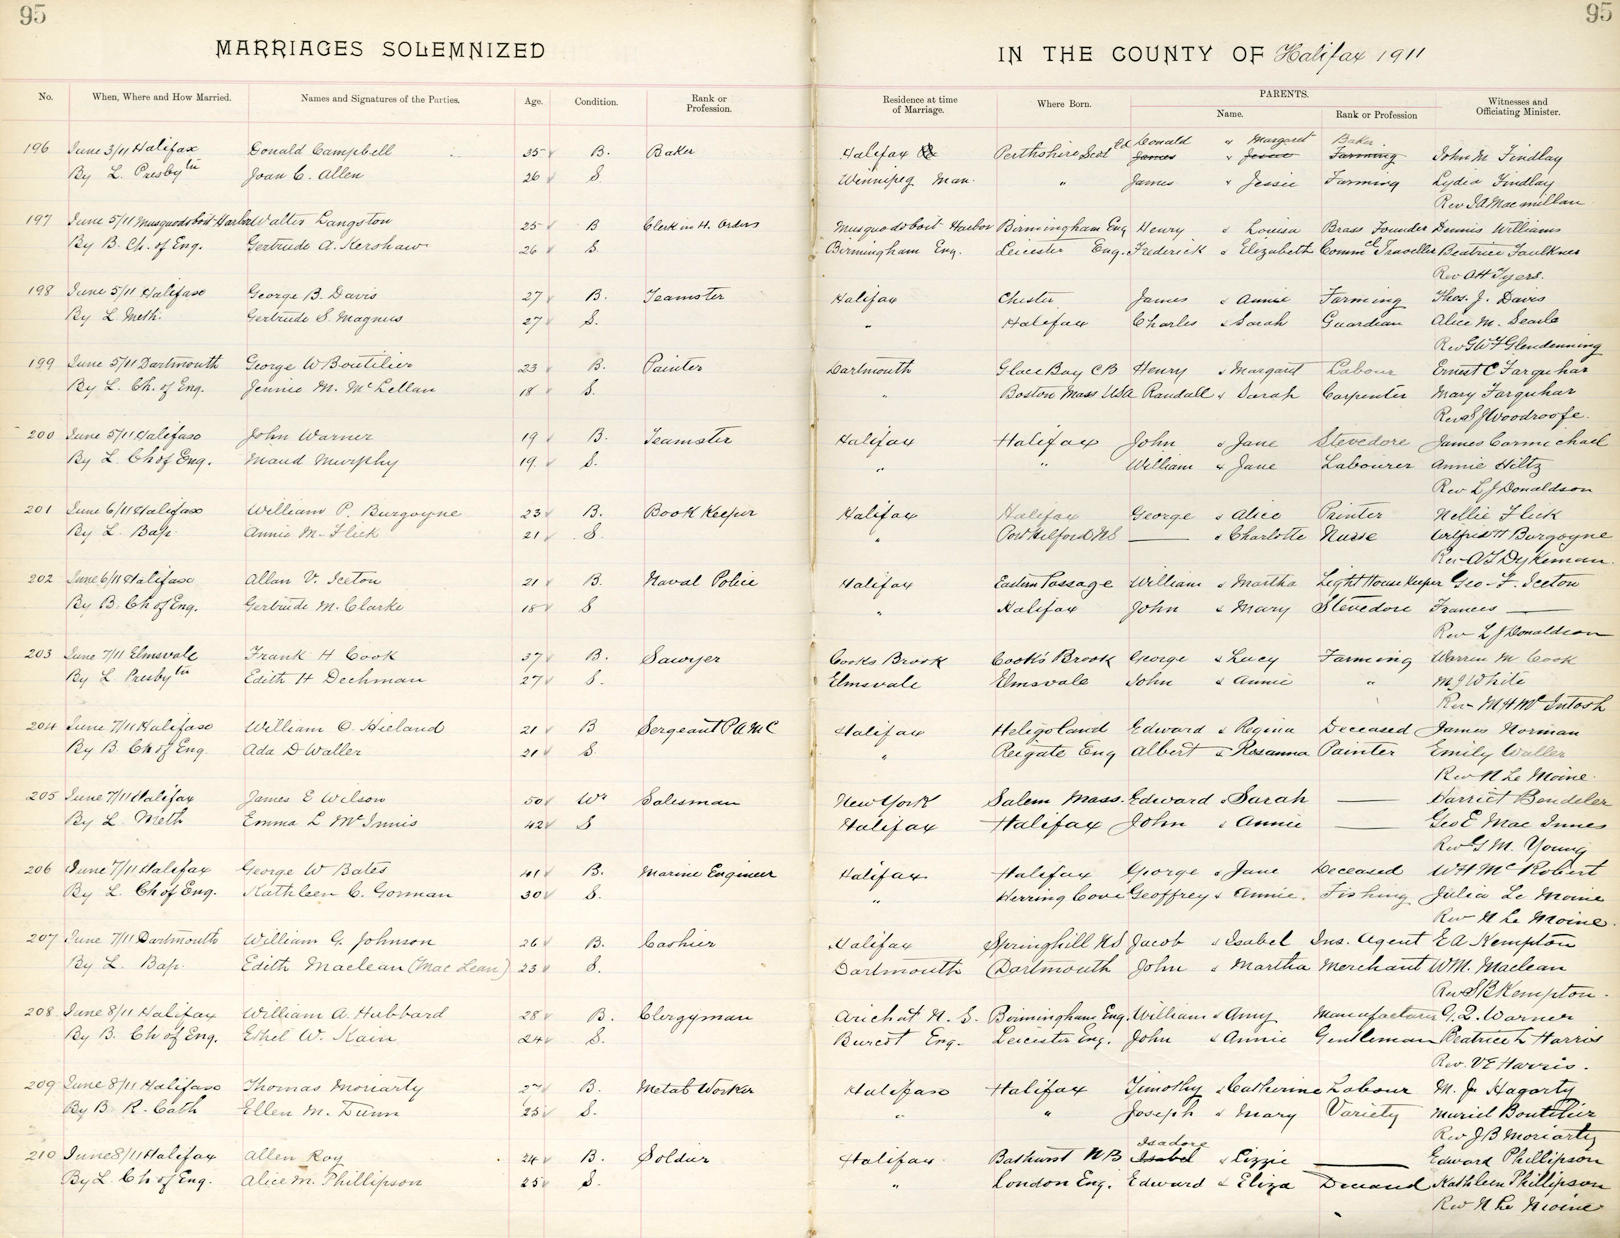 95 95
MARRIAGES SOLEMNIZED IN THE COUNTY OF Halifax 1911
No. When, Where and How Married. Names and Signatures of the Parties. Age. Condition. Rank or Profession. Residence at time of Marriage. Where Born. PARENTS. Name. Rank or Profession Witnesses and Officiating Minister.
196 June 3/11 Halifax Donald Campbell 35 B. Baker Halifax Perthshire Scotld Donald " Margaret Baker John M Findlay
James " Jessie Farming
By L. Presbytn Joan C. Allen 26 S Winnipeg Man. " James " Jessie Farming Lydia Findlay
Rev J A Macmillan
197 June 5/11 Musquodoboit Harbor Walter Langston 25 B Clerk in H. Orders Musquodoboit Harbor Birmingham Eng Henry & Louisa Brass Founder Dennis Williams
By B. Ch. of Eng. Gertrude A. Kershaw 26 S. Birmingham Eng. Leicester Eng. Frederick & Elizabeth Commcl Traveller Beatrice Faulkner
Rev AH Tyers.
198 June 5/11 Halifax George B. Davis 27 B. Teamster Halifax Chester James & Annie Farming Thos. J. Davis
By L. Meth. Gertrude S. Magnus 27 S. " Halifax Charles & Sarah Guardian Alice M. Searle
Rev G W F Glendenning
199 June 5/11 Dartmouth George W Boutilier 23 B. Painter Dartmouth Glace Bay CB Henry & Margaret Labour Ernest C Farquhar
By L. Ch. of Eng. Jennie M. McLellan 18 S. " Boston Mass USA Randall & Sarah Carpenter Mary Farquhar
Rev S J Woodroofe.
200 June 5/11 Halifax John Warner 19 B. Teamster Halifax Halifax John & Jane Stevedore James Carmichael
By L. Ch of Eng. Maud Murphy 19. S. " " William & Jane Labourer Annie Hiltz
Rev L J Donaldson
201 June 6/11 Halifax William P. Burgoyne 23 B. Book Keeper Halifax Halifax George & Alice Printer Nellie Flick
By L. Bap. Annie M. Flick 21 S. " Port Hilford NS — & Charlotte Nurse Wilfred H Burgoyne
Rev A F Dykeman.
202 June 6/11 Halifax Allan V. Iceton 21 B. Naval Police Halifax Eastern Passage William & Martha Light House Keeper Geo. F. Iceton
By B. Ch of Eng. Gertrude M. Clarke 18 S " Halifax John & Mary Stevedore Frances —
Rev L J Donaldson
203 June 7/11 Elmsvale Frank H Cook 37 B. Sawyer Cooks Brook Cook's Brook George & Lucy Farming Warren M Cook
By L Presbytn Edith H Dechman 27 S. Elmsvale Elmsvale John & Annie " M J White
Rev M H McIntosh
204 June 7/11 Halifax William O. Hieland 21 B Sergeant PAMC Halifax Heligoland Edward & Regina Deceased James Norman
By B Ch of Eng. Ada D Waller 21 S. " Reigate Eng Albert & Rosanna Painter Emily Waller
Rev N Le Moine.
205 June 7/11 Halifax James E Wilson 50 Wr Salesman New York Salem Mass. Edward & Sarah — Harriet Bendeler
By L. Meth Emma L McInnis 42 S Halifax Halifax John & Annie — Geo E Mac Innes
Rev G M. Young
206 June 7/11 Halifax George W Bates 41 B. Marine Engineer Halifax Halifax George & Jane Deceased W H McRobert
By L. Ch of Eng. Kathleen C. Gorman 30 S. " Herring Cove Geoffrey & Annie. Fishing Julia Le Moine
Rev N Le Moine.
207 June 7/11 Dartmouth William G. Johnson 26 B. Cashier Halifax Springhill NS Jacob & Isabel Ins. Agent E A Kempton
By L. Bap. Edith Maclean (MacLean) 23 S. Dartmouth Dartmouth John & Martha Merchant WM. Maclean
Rev S B Kempton.
208 June 8/11 Halifax William A. Hubbard 28 B. Clergyman Arichat N. S. Birmingham Eng. William & Amy Manufacturer G. Q. Warner
By B. Ch of Eng. Ethel W. Kain 24 S. Burcot Eng. Leicester Eng. John & Annie Gentleman Beatrice L Harris
Rev. V E Harris.
209 June 8/11 Halifax Thomas Moriarty 27 B. Metal Worker Halifax Halifax Timothy & Catherine Labour M. J. Hagarty
By B. R. Cath Ellen M. Dunn 25 S. " " Joseph & Mary Variety Muriel Boutilier
Rev J B Moriarty
210 June 8/11 Halifax Allen Roy 24 B. Soldier Halifax Bathurst NB Isadore Isabel & Lizzie — Edward Phillipson
By L. Ch of Eng. Alice M. Phillipson 25 S. " London Eng. Edward & Eliza Deceased Kathleen Phillipson
Rev N Le Moine